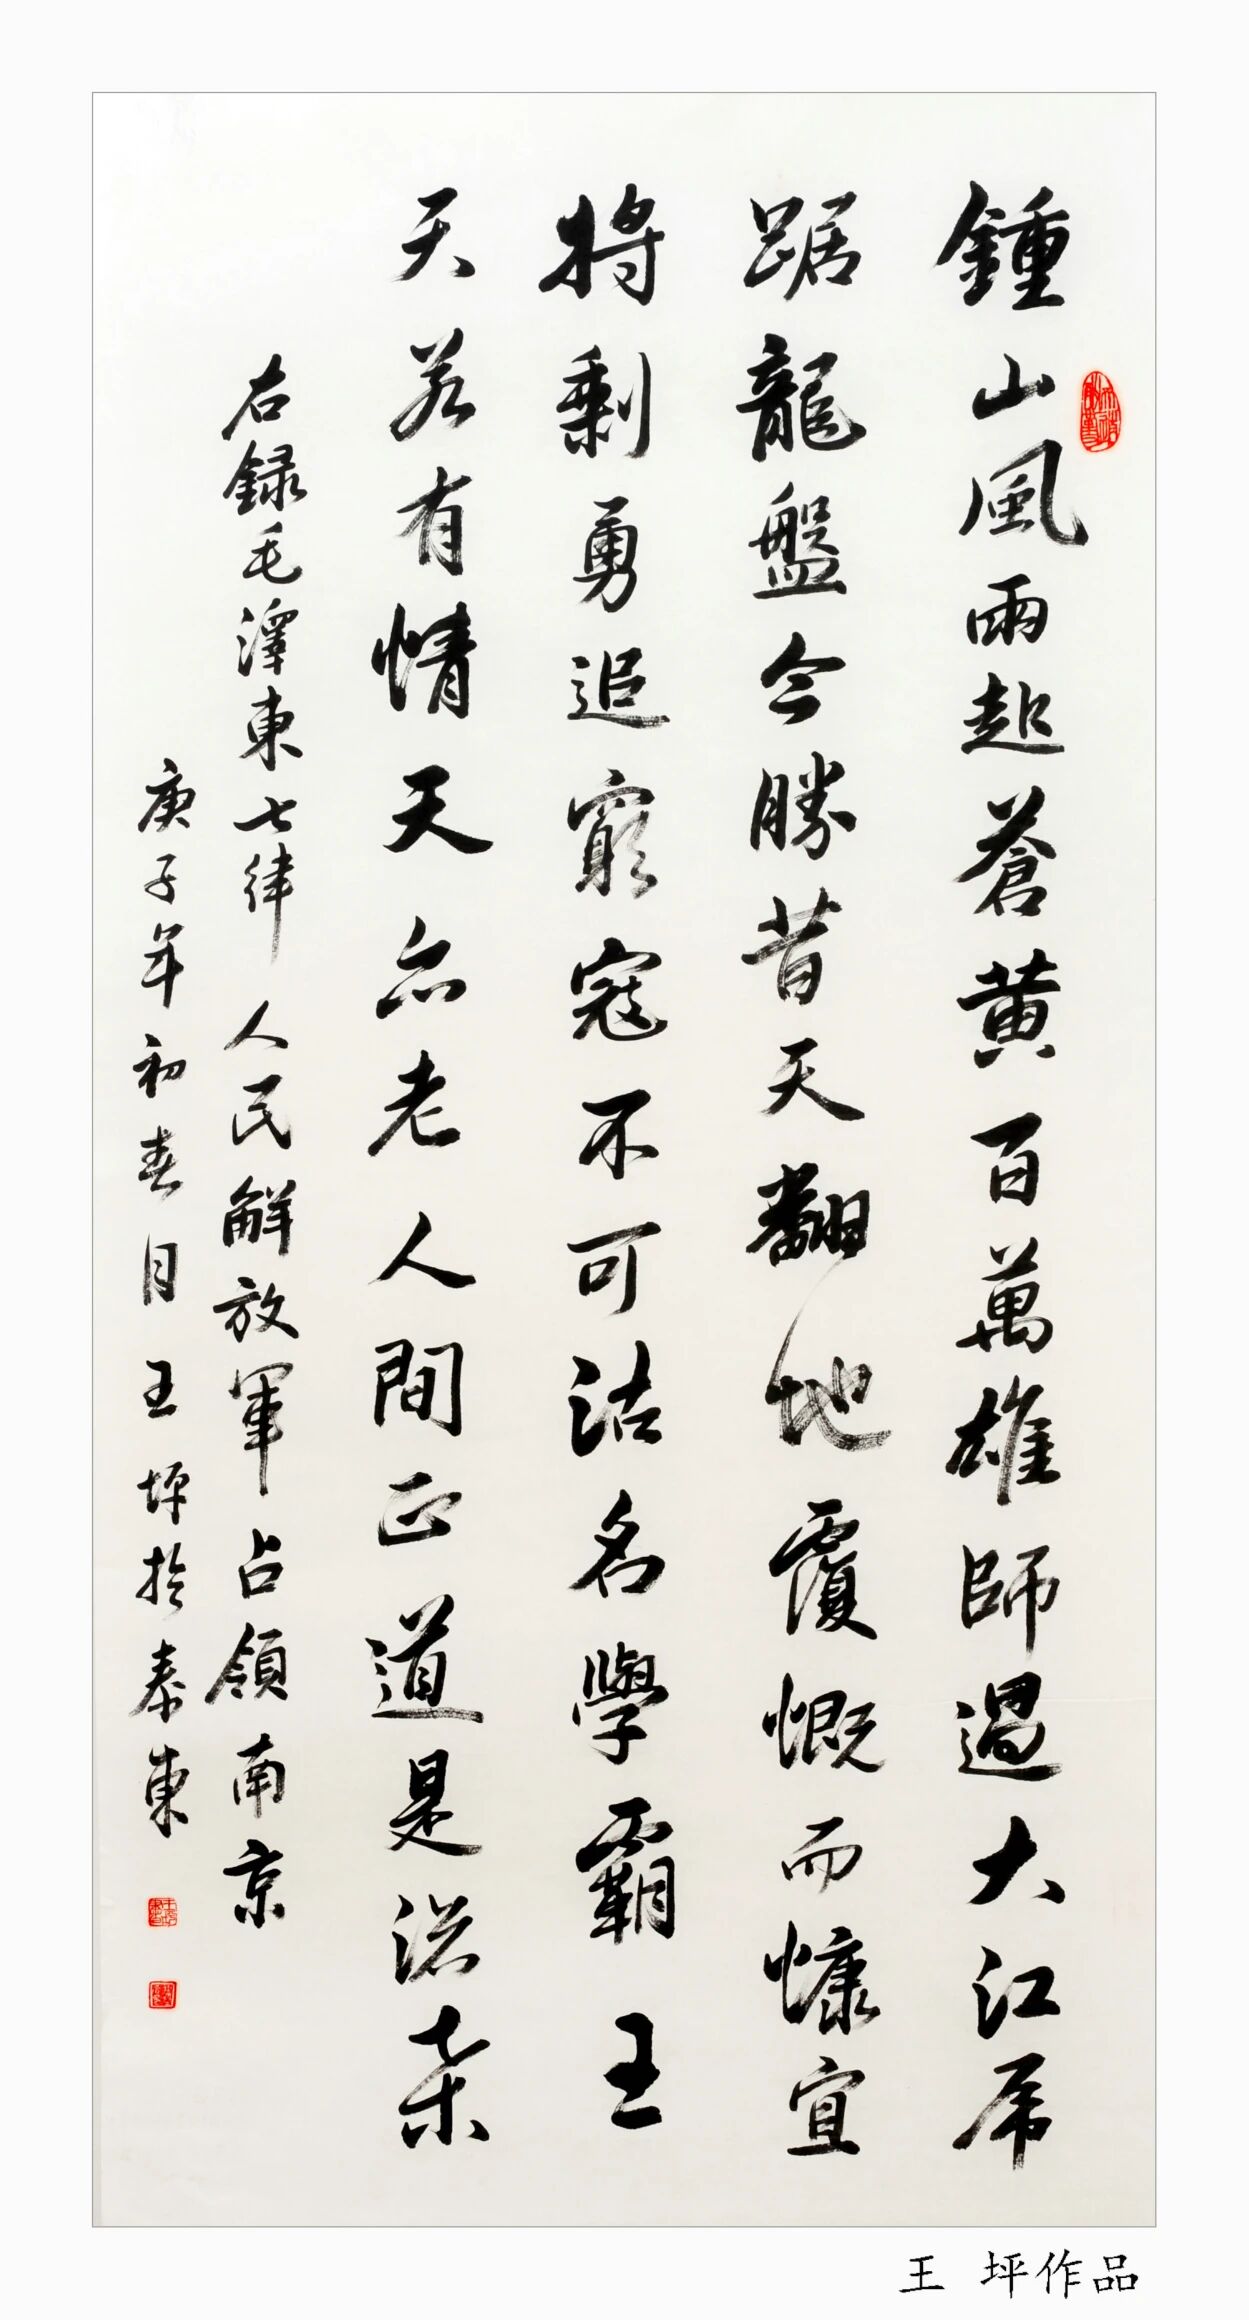 鍾山風雨起蒼黄百萬雄師過大江虎
踞龍盤今勝昔天翻地覆慨而慷宜
將剩勇追窮寇不可沽名學霸王
天若有情天亦老人間正道是滄桑
右録毛澤東七律人民解放軍占領南京
庚子年初春月王坪於泰東
王 坪作品